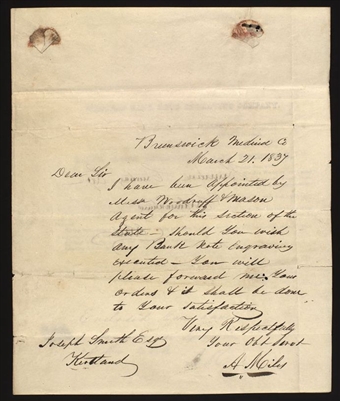 Brunswick Medina Co
March 21. 1837
Dear Sir
I have been appointed by
Mess Woodruff & Mason
Agent for this Section of the
State - Should You wish
any Bank Note Engraving
executed - You will
please forward me Your
orders & it shall be done
to Your satisfaction
Very Respectfully
Your Obt Servt
A Miles
Joseph Smith Esq
Kirtland